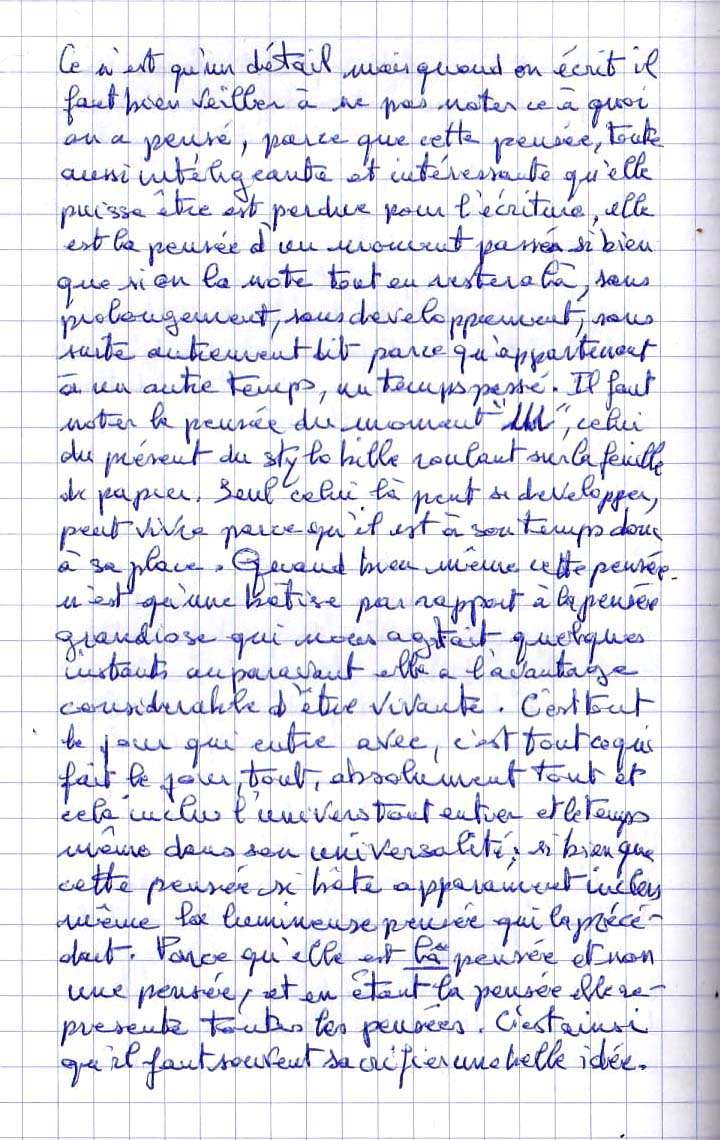 Ce n'est qu'un détail mais quand on écrit il
faut bien veiller à ne pas noter ce à quoi
on a pensé, parce que cette pensée, toute
aussi intéligeante et intéressante qu'elle
puisse être est perdue pour l'écriture, elle
est la pensée d'un moment passé si bien
que si on la note tout en restera là, sans
prolongement, sans developpement, sans
suite autrement dit parce qu'appartenant
à un autre temps, un temps passé. Il faut
noter la pensée du moment " ", celui
du présent du stylo bille roulant sur la feuille
de papier. Seul celui là peut se developper,
peut vivre parce qu'il est à son temps donc
à sa place. Quand bien même cette pensée
n'est qu'une bêtise par rapport à la pensée
grandiose qui nous agitait quelques
instants auparavant elle a l'avantage
considerable d'être vivante. C'est tout
le jour qui entre avec, c'est tout ce qui
fait le jour, tout, absolument tout et
cela inclus l'univers tout entier et le temps
même dans son universalité; si bien que
cette pensée si bête apparament inclus
même la lumineuse pensée qui la précé-
dait. Parce qu'elle est là pensée et non
une pensée, et en étant la pensée elle re-
presente toutes les pensées. C'est ainsi
qu'il faut souvent sacrifier une belle idée.